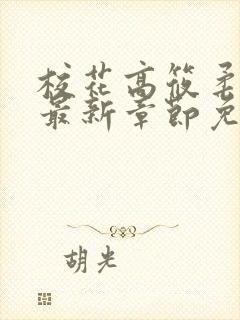 校花高筱柔
最新章節免
胡光